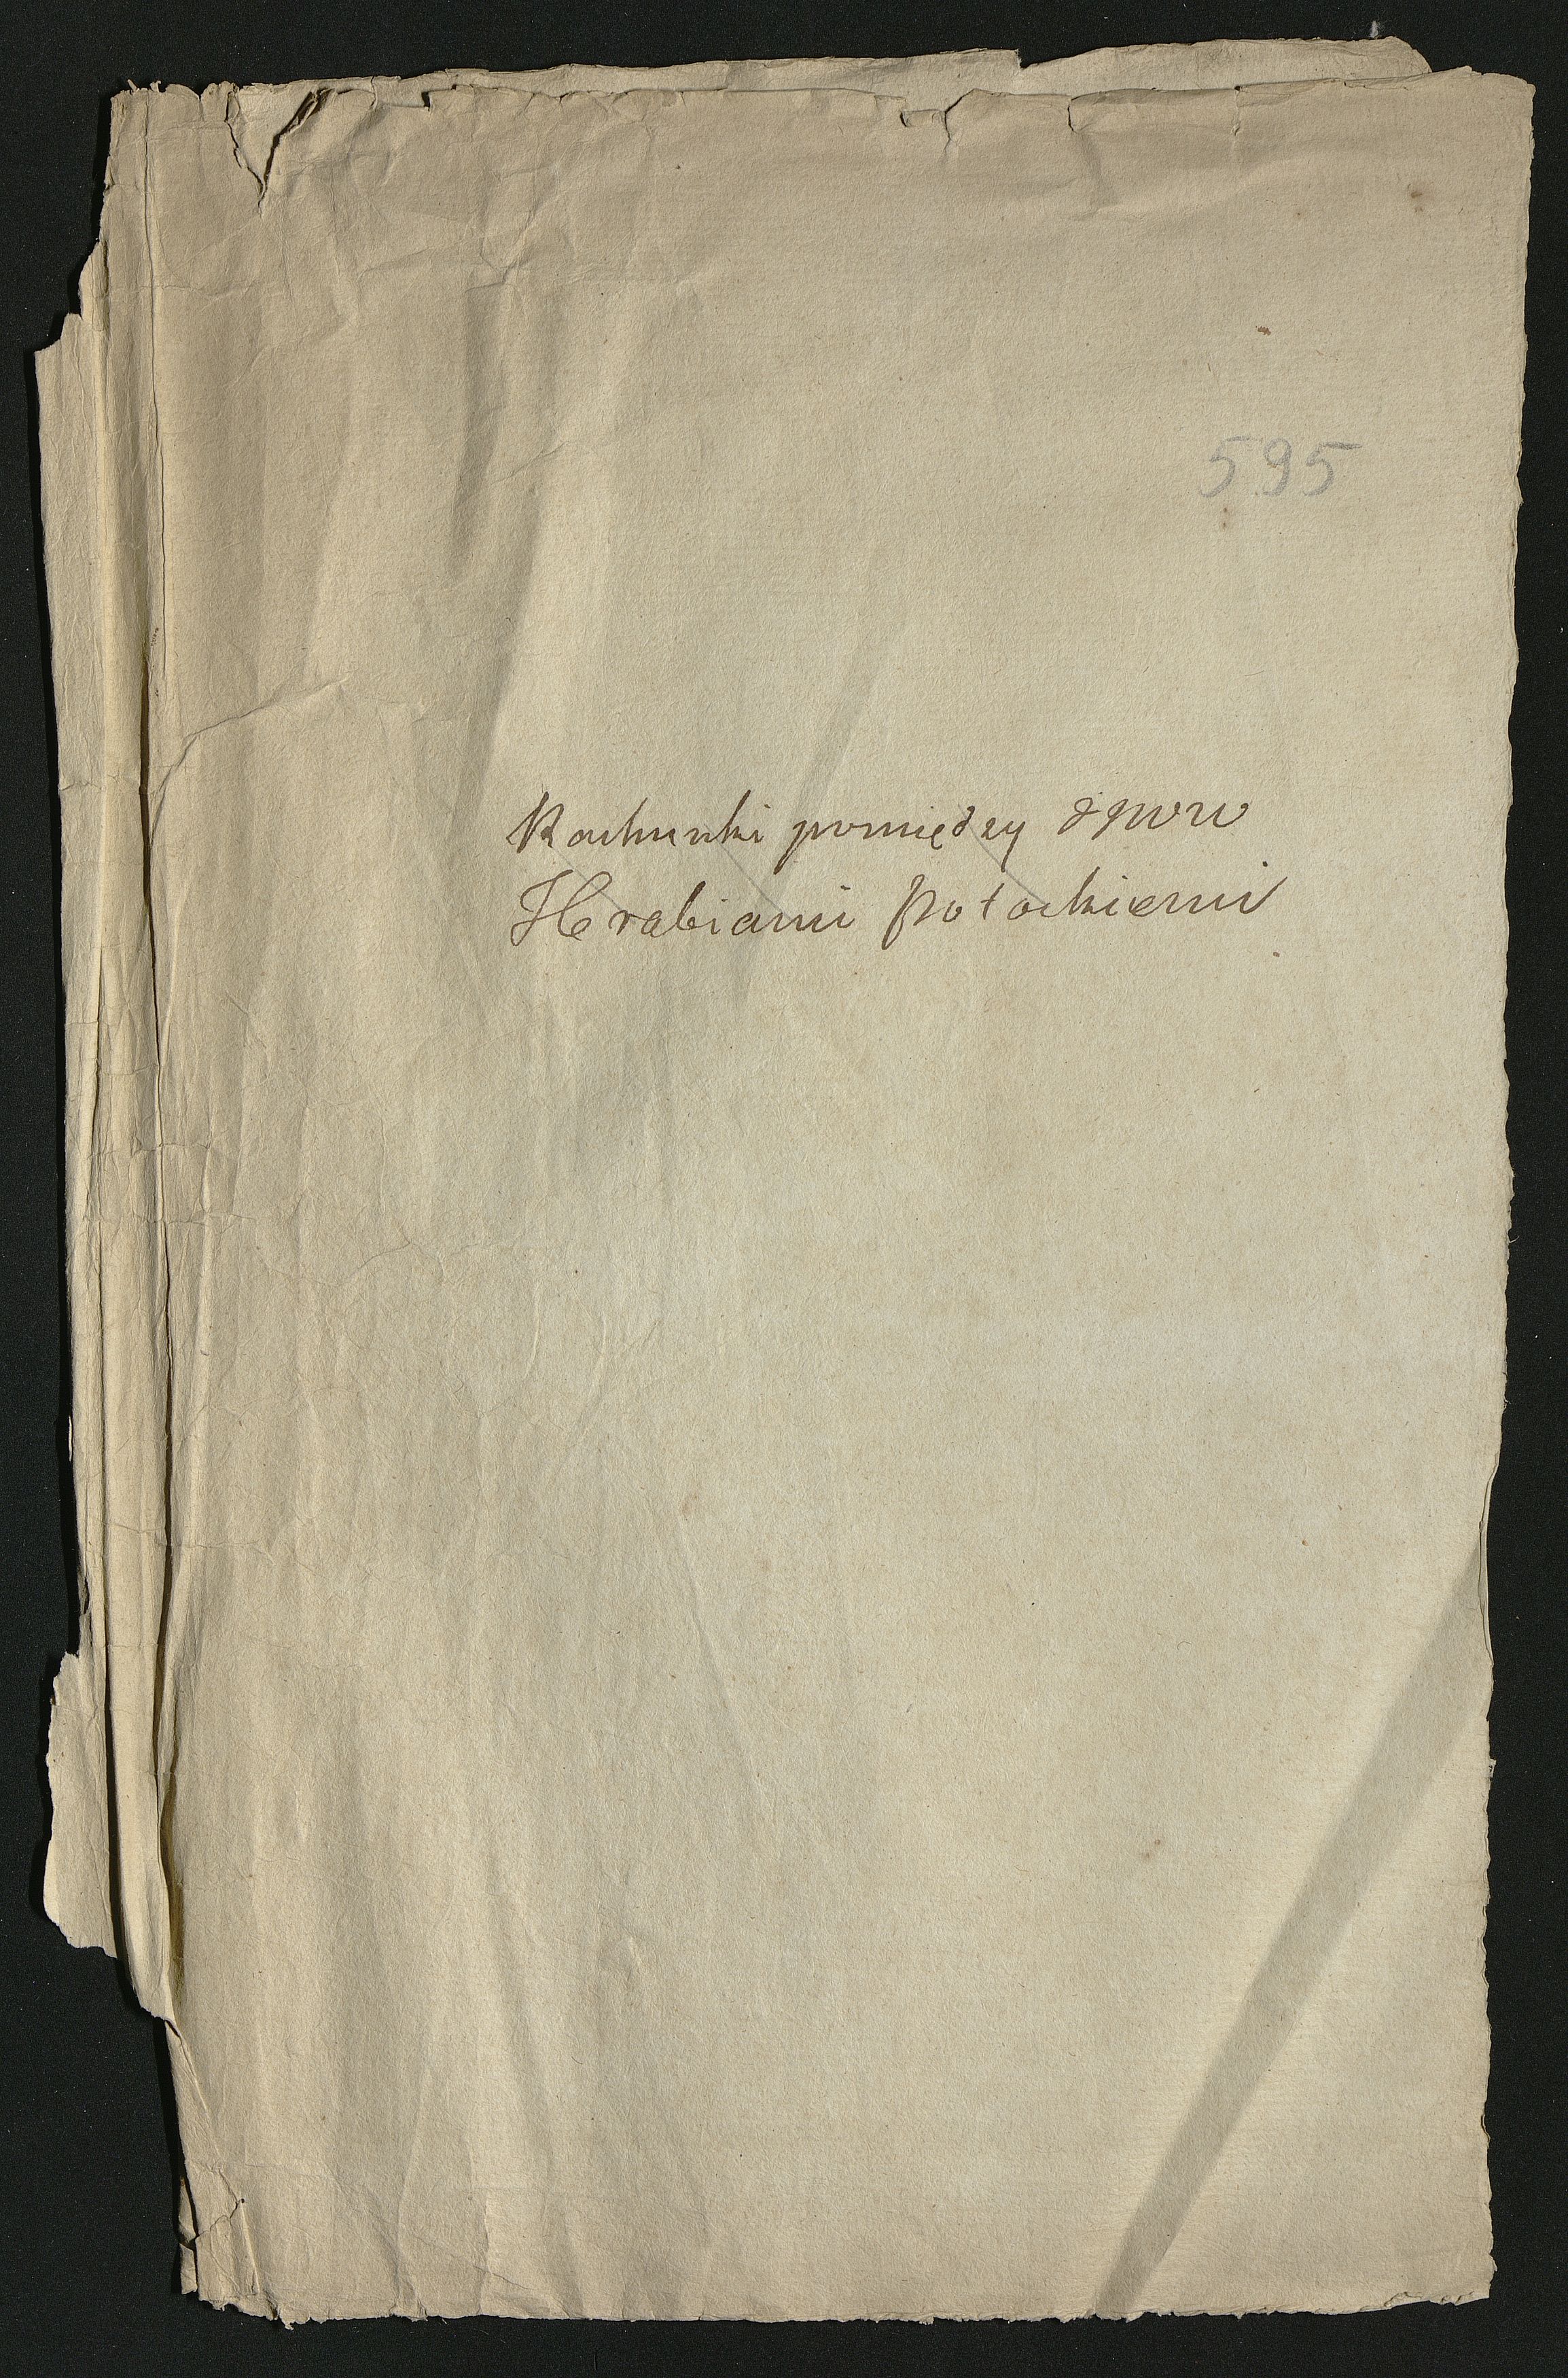 595
Rachunki pomiędzy
Hrabiami Potockiemi